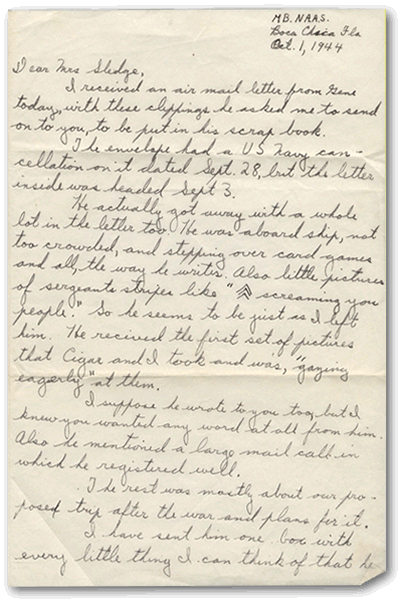 M.B. N.A.A.S.
Boca Chica Fla
Oct. 1, 1944
Dear Mrs Sledge,
I received an air mail letter from Gene
today, with these clippings he asked me to send
on to you, to be put in his scrap book.
The envelope had a US Navy can-
cellation on it dated Sept. 28, but the letter
inside was headed Sept 3.
He actually got away with a whole
lot in the letter too. He was aboard ship, not
too crowded, and stepping over card games
and all, the way he writes. Also little pictures
of sergeants stripes like " screaming you
people." So he seems to be just as I left
him. He recived the first set of pictures
that Cigar and I took and was, "gazing
eagerly" at them.
I suppose he wrote to you too, but I
knew you wanted any word at all from him.
Also he mentioned a large mail call in
which he registered well.
The rest was mostly about our pro-
posed trip after the war and plans for it.
I have sent him one box with
every little thing I can think of that he